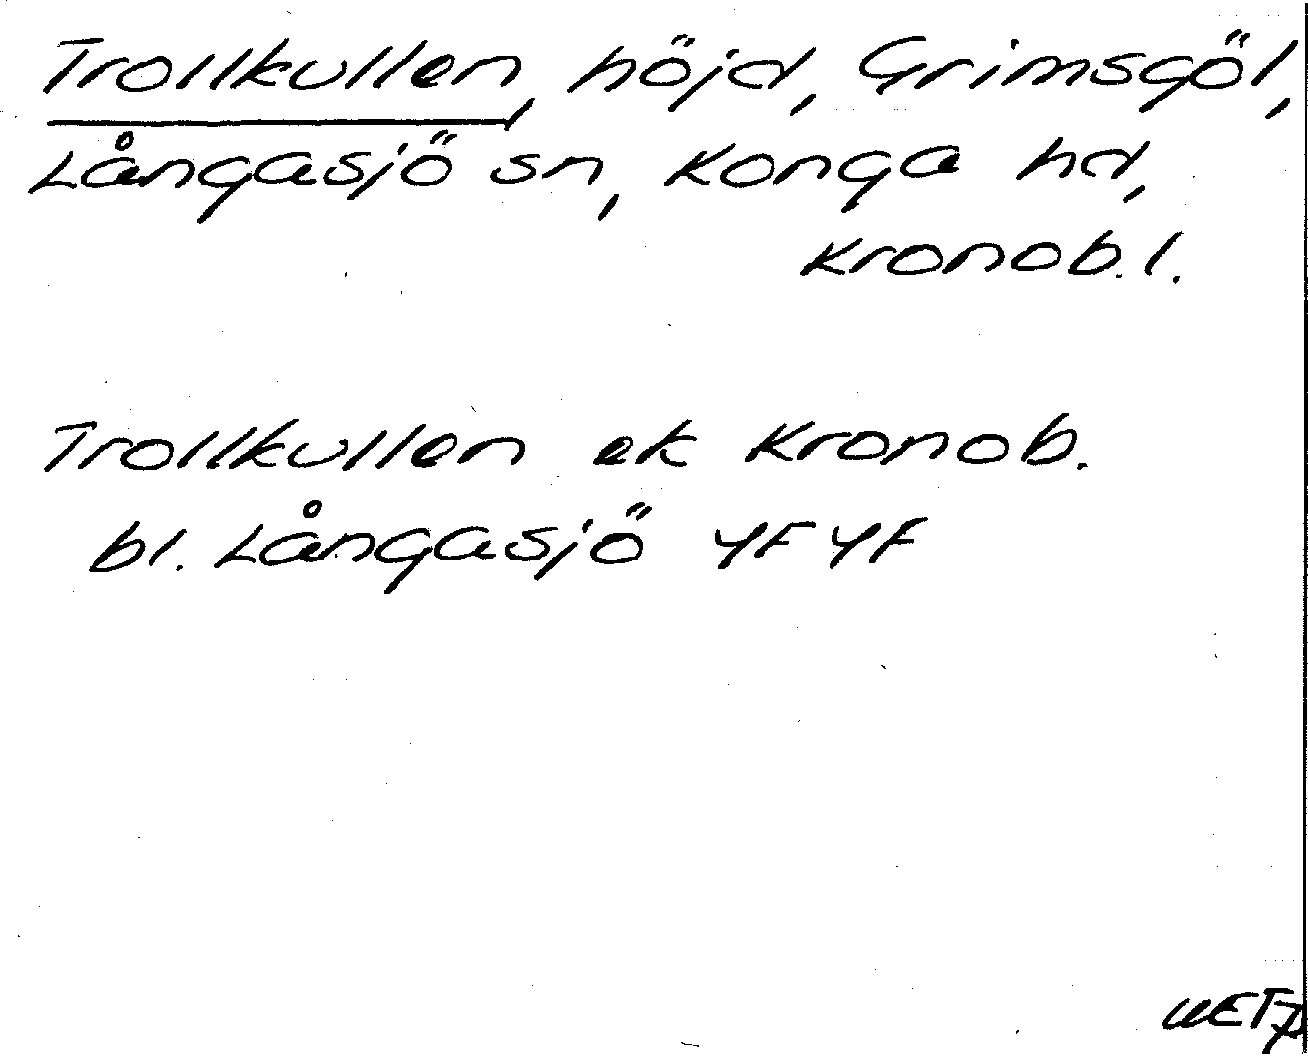 Trollkullen, höjd, Grimsgöl,
Långasjö sn, Konga hd,
Kronob. l.
Trollkullen ek Kronob.
bl. Långasjö 4F 4f